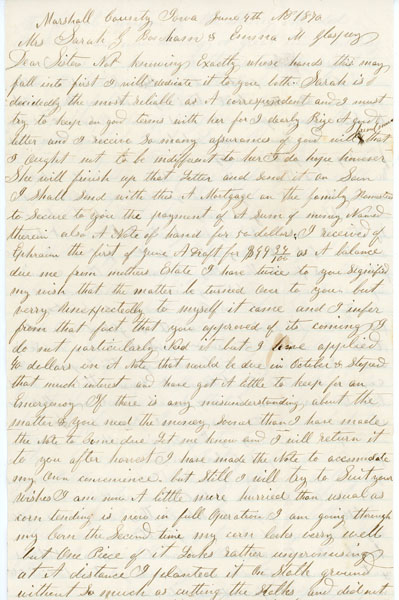 Marshall County Iowa June 4th AD 1870
Mrs Sarah G & Emma M
Dear Sisters Not knowing Exactly whose hands this may
fall into first I will dedicate it to you both. Sarah is
decidedly the most reliable as A correspondent and I must
try to keep on good terms with her for I dearly Prize A good
letter and I receive so many assurances of good will from her that
I ought not to be indifferent to her I do hope however
She will finish up that Letter and Send it on Soon
I Shall Send with this A Mortgage on the family Homestead
to Secure to you the payment of A Sum of money Named
therein also A Note of hand for 50 dollars. I received of
Ephraim the first of June A Draft for $99 as A balance
due me from mothers Estate I have twice to you Signified
my wish that the matter be turned over to you but
very Unexpectedly to myself it came and I infer
from that fact that you approved of its coming I
do not particularly Need it but I have applied
dollars in A Note that would be due in October & Stoped
that much interest and have got A little to keep for an
Emergency If there is any misunderstanding about the
matter & you need the money sooner than I have made
the Note to Come due Let me know and I will return it
to you after harvest I have made the Note to accomodate
my Own convenience. but Still I will try to Suit your
wishes I am now A little more hurried than usual as
corn tending is now in full Operation I am going through
my Corn the Second time my corn looks very well
but One Piece of it looks rather unpromising
at A distance I planted it On Stalk ground
without So much as cutting the Stalks and did not